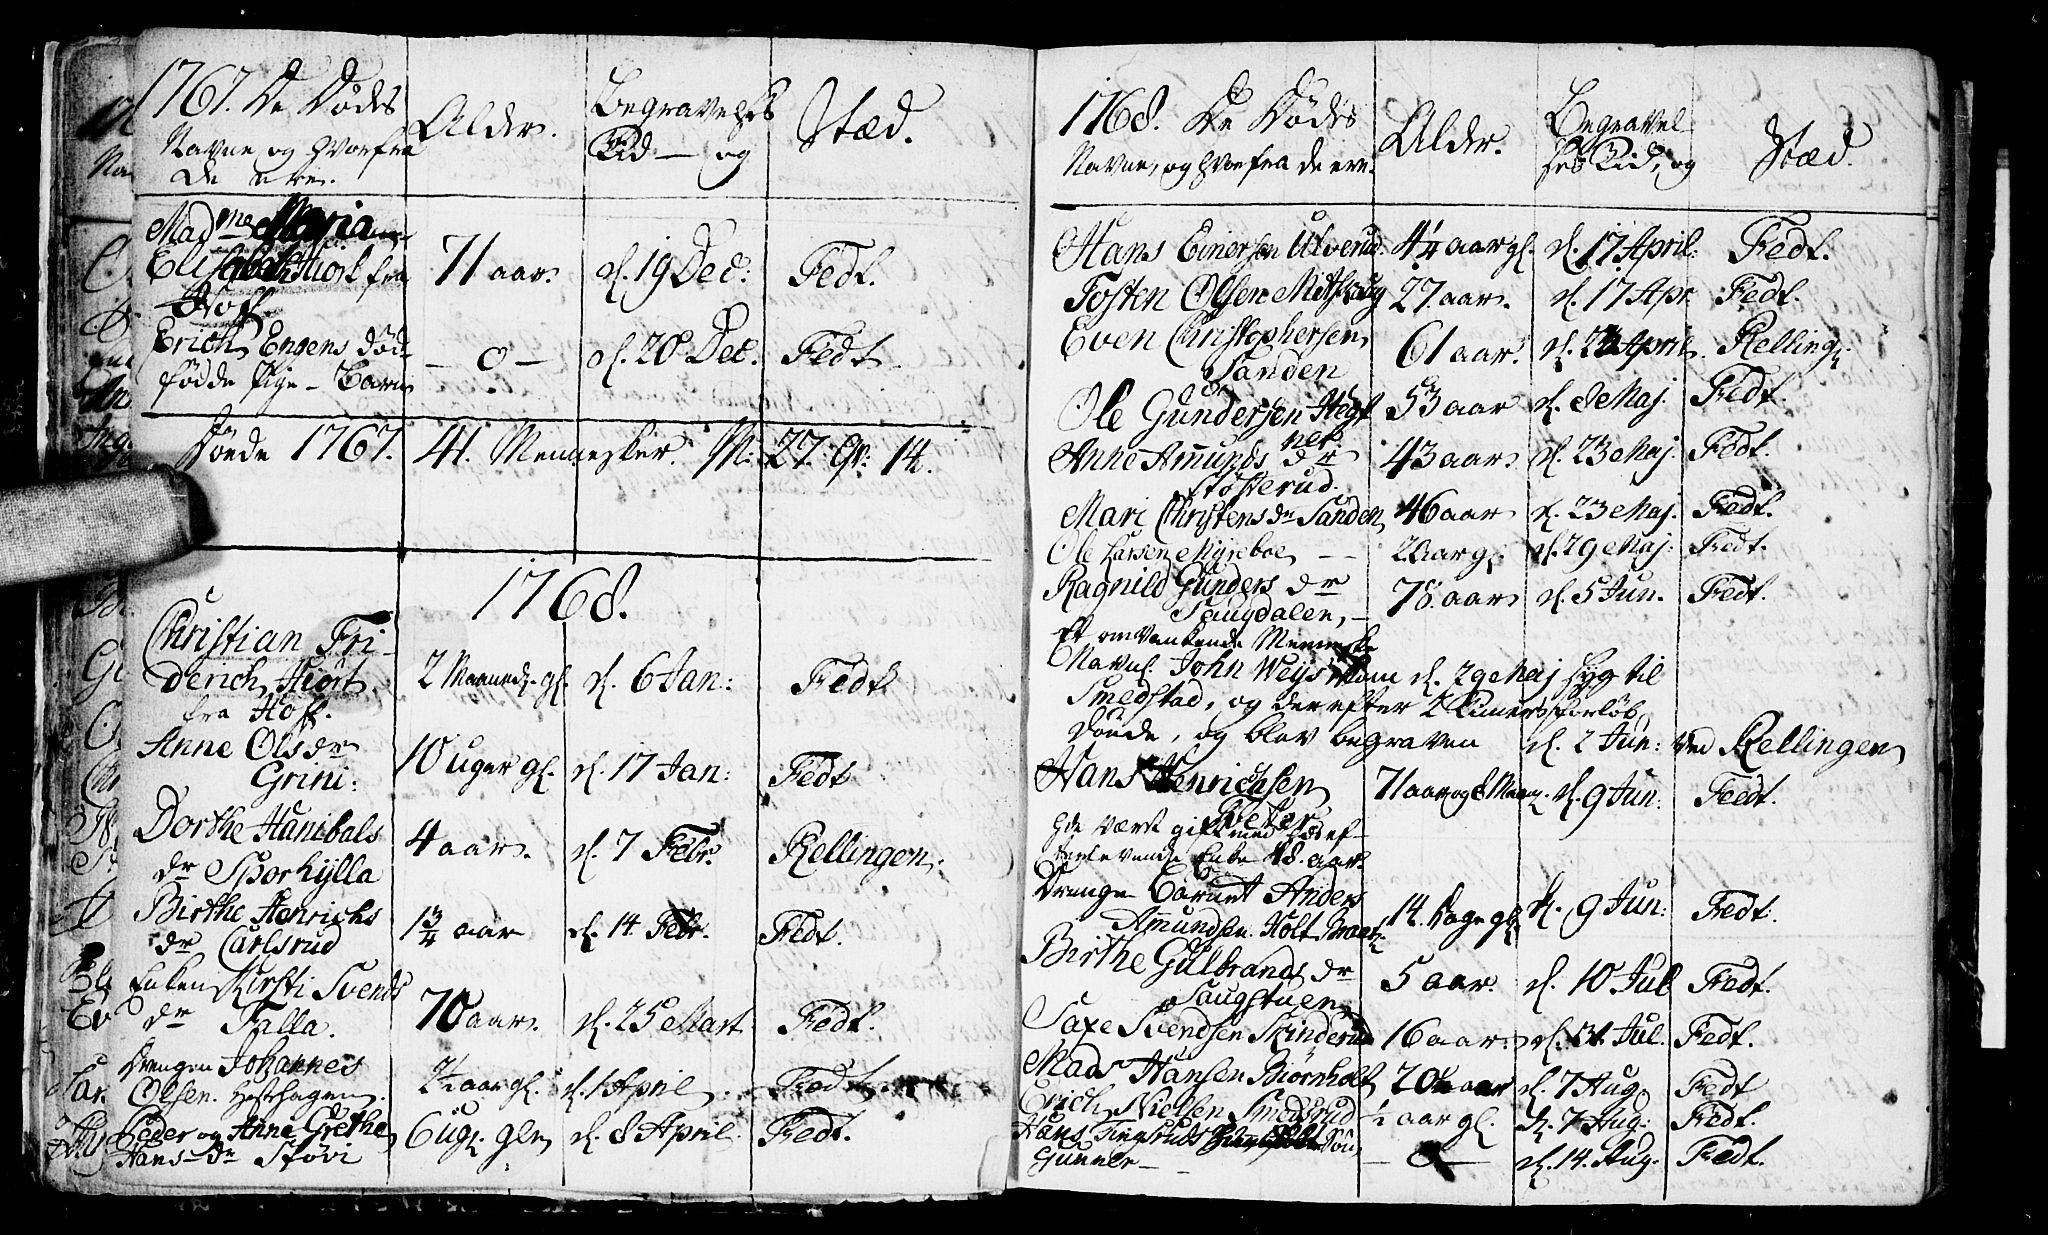 1767. De Dødes
Navne og hvorfra
de ere.
Alder.
Begravelses
Tid — og
Stæd.
Madme Maria
Elisabeth Hiort fra
Hof.
71 aar.
d. 19 Dec:
Fedt.
Erich Engens død-
fødde Pige-Barn
— o —
d. 20 Dec.
Fedt
døede 1767. 41. Mennesker. M: 27. Qv: 14.
1768.
Christian Fri-
derich Hiort.
fra Hoff.
2 Maaned. gl.
d. 6 Jan:
Fedt
Anne Olsdr
Grini:
10 uger gl.
d. 17 Jan:
Fedt
Dorthe Hanibals
dr Sporkylla
4 aar.
d. 7 Febr.
Kellingen.
Birthe Henrichs
dr Carlsrud
1 3/4 aar
d. 14. Febr.
Fedt.
Enken Kirsti Svends
dr Falla.
70 aar.
d. 25 Mart.
Fedt.
Drengen Johannes
Olsen. Hesthagen.
2 1/2 aar gl.
d. 1 April.
Fedt
Peder og Anne Grethe
Hans-dr Støvi
6 ug. gln
d. 8 April.
Fedt.
1768. De Dødes
Navne, og hvorfra de ere.
Alder.
Begravel-
ses Tid, og
Stæd.
Hans Einersen Ulverud.
4 1/4 aar gl.
d. 17 April:
Fedt.
Tosten Olsen
27. aar.
d. 17 Apr.
Fedt.
Even Christophersen
Sanden
61 aar.
April
Kelling:
Ole Gundersen Hegt
ner.
53 aar
d. 8 Maj.
Fedt.
Anne Amunds dr
Støsterud.
43 aar.
d. 23 Maj.
Fedt.
Mari Christens dr Sanden
46 aar
d. 23 Maj.
Fedt.
Ole Larsen Myreboe — —
2 aar gl.
d. 29 Maj:
Fedt.
Ragnild Gunders dr
Saugdalen, —
78. aar
d. 5 Jun.
Fedt.
Et omvankende Menneske
Navnl. John Weys kom d. 29 Maj syg til
Smedstad, og derefter 2 Timers forløb
døude, og blev begraven d. 2 Jun: ved Kellingen
Hans Henrichsen
71 aar og 8 Maan.
d. 9 Jun:
Fedt.
hde været gift med
terlevende Enke 48. aar.
Drenge Barnet Anders
Amundsen. Holt Braat
14. Dage gl.
d. 9 Jun:
Fedt.
Birthe Gulbrands dr
Saugstuen
5 aar.
d. 10 Jul
Fedt.
Saxe Svendsen Skinderud
16 aar.
d. 31. Jul.
Fedt.
Mads Hansen Biørnholt
aar
d. 7 Aug
Fedt
Erich Nielsen Smedsrud
1/2 aar gl.
d. 7 Aug:
Fedt.
Hans Tingsruds
Gunner —
— o —
d. 14. Aug.
Fedt.